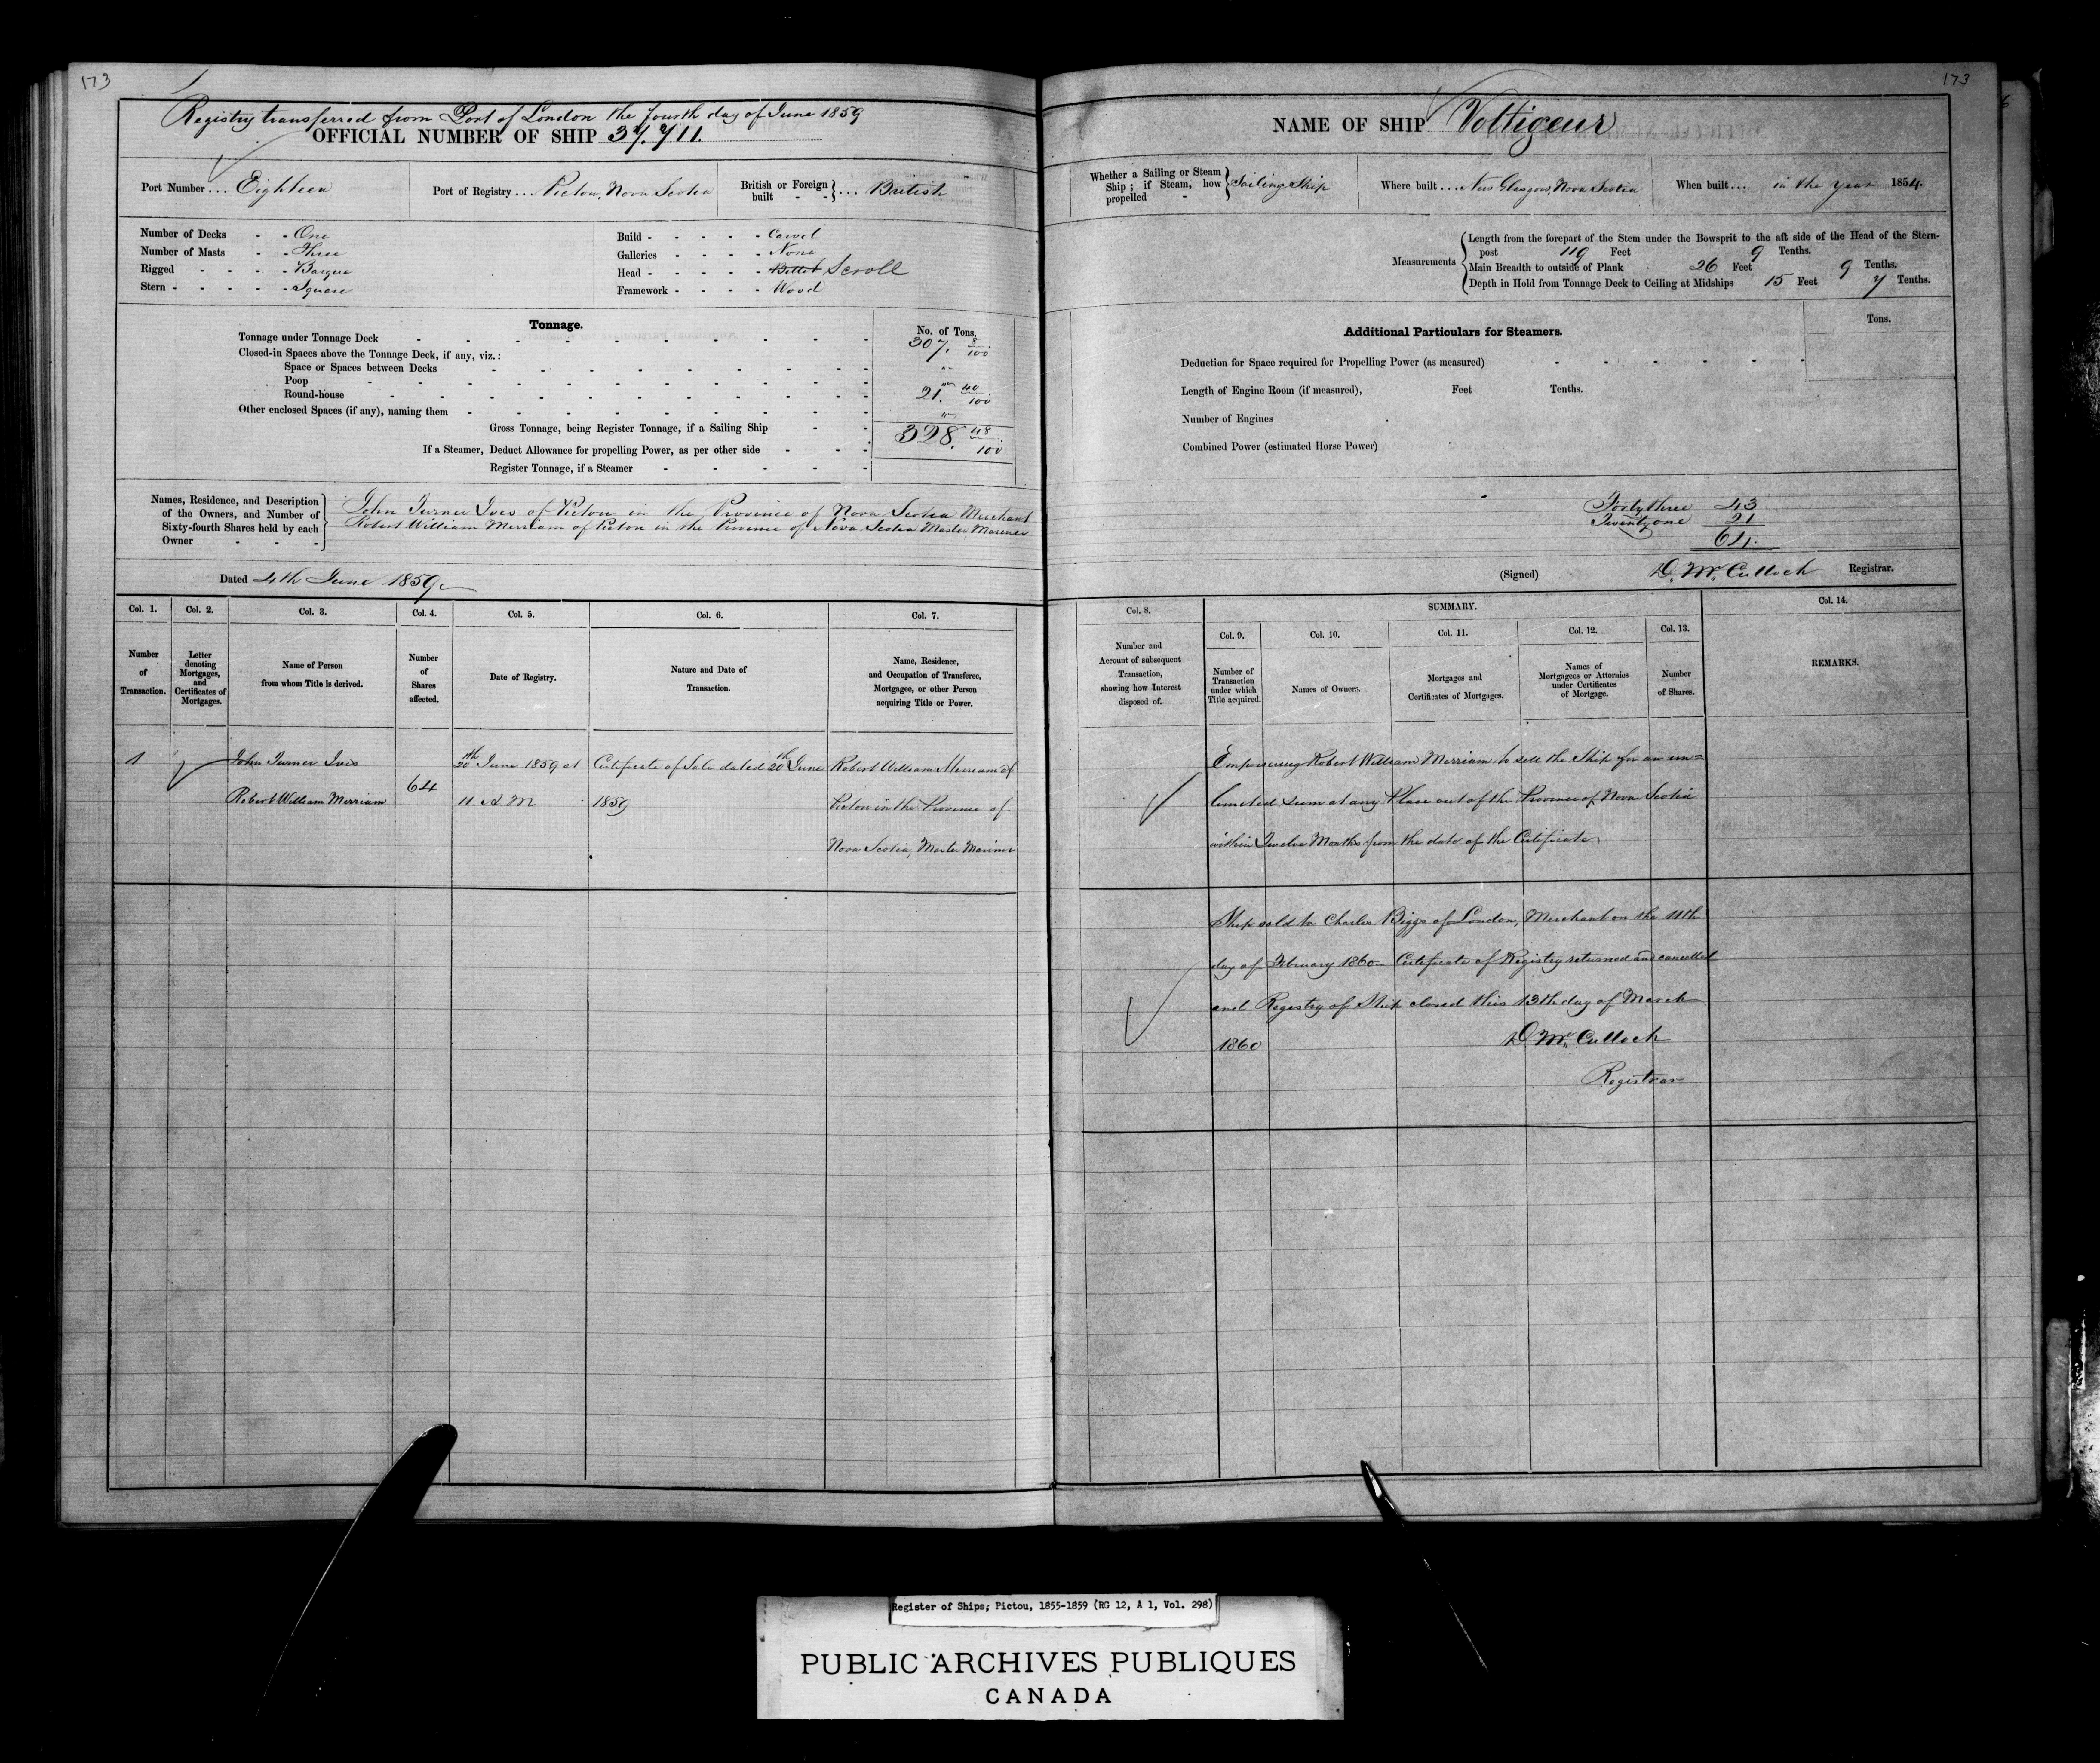 173
Registry transferred from Port of London the fourth day of June 1859
OFFICIAL NUMBER OF SHIP 37.711.
Port Number ... Eighteen
Port of Registry ... Pictou, Nova Scotia
British or Foreign built - - } ... British
Number of Decks - - One
Number of Masts - - Three
Rigged - - - - Barque
Stern - - - - - Square
Build - - - - - Carvel
Galleries - - - - None
Head - - - - - Billet Scroll
Framework - - - - Wood
Tonnage.
No. of Tons.
Tonnage under Tonnage Deck 307. 8/100
Closed-in Spaces above the Tonnage Deck, if any, viz.:
Space or Spaces between Decks
Poop
Round-house 21. 40/100
Other enclosed Spaces (if any), naming them
Gross Tonnage, being Register Tonnage, if a Sailing Ship 328. 48/100
If a Steamer, Deduct Allowance for propelling Power, as per other side
Register Tonnage, if a Steamer
Names, Residence, and Description
of the Owners, and Number of
Sixty-fourth Shares held by each
Owner - - -
John Turner Ives of Pictou in the Province of Nova Scotia Merchant
Robert William Merriam of Pictou in the Province of Nova Scotia Master Mariner
Dated 4th June 1859
Col. 1.
Number
of
Transaction.
Col. 2.
Letter
denoting
Mortgages,
and
Certificates of
Mortgages.
Col. 3.
Name of Person
from whom Title is derived.
Col. 4.
Number
of
Shares
affected.
Col. 5.
Date of Registry.
Col. 6.
Nature and Date of
Transaction.
Col. 7.
Name, Residence,
and Occupation of Transferee,
Mortgagee, or other Person
acquiring Title or Power.
1
John Turner Ives
Robert William Merriam
64
20th June 1859 at
11 A M
Certificate of Sale dated 20th June
1859
Robert William Merriam of
Pictou in the Province of
Nova Scotia, Master Mariner
173
NAME OF SHIP Voltigeur
Whether a Sailing or Steam
Ship; if Steam, how
propelled -
Sailing Ship
Where built ... New Glasgow, Nova Scotia
When built ... in the year 1854.
Measurements
Length from the forepart of the Stem under the Bowsprit to the aft side of the Head of the Stern-
post 119 Feet 9 Tenths.
Main Breadth to outside of Plank 26 Feet 9 Tenths.
Depth in Hold from Tonnage Deck to Ceiling at Midships 15 Feet 7 Tenths.
Additional Particulars for Steamers.
Tons.
Deduction for Space required for Propelling Power (as measured)
Length of Engine Room (if measured), Feet Tenths.
Number of Engines
Combined Power (estimated Horse Power)
Forty three 43
Twenty one 21
64.
(Signed) D. McCulloch Registrar.
Col. 8.
Number and
Account of subsequent
Transaction,
showing how Interest
disposed of.
SUMMARY.
Col. 9.
Number of
Transaction
under which
Title acquired.
Col. 10.
Names of Owners.
Col. 11.
Mortgages and
Certificates of Mortgages.
Col. 12.
Names of
Mortgagees or Attornies
under Certificates
of Mortgage.
Col. 13.
Number
of Shares.
Col. 14.
REMARKS.
Empowering Robert William Merriam to sell the Ship for an un=
limited sum at any Place out of the Province of Nova Scotia
within Twelve Months from the date of the Certificate
Ship sold to Charles Biggs of London, Merchant on the 11th
day of February 1860 - Certificate of Registry returned and cancelled
and Registry of Ship closed this 13th day of March
1860
D McCulloch
Registrar
Register of Ships; Pictou, 1855-1859 (RG 12, A 1, Vol. 298)
PUBLIC ARCHIVES PUBLIQUES
CANADA